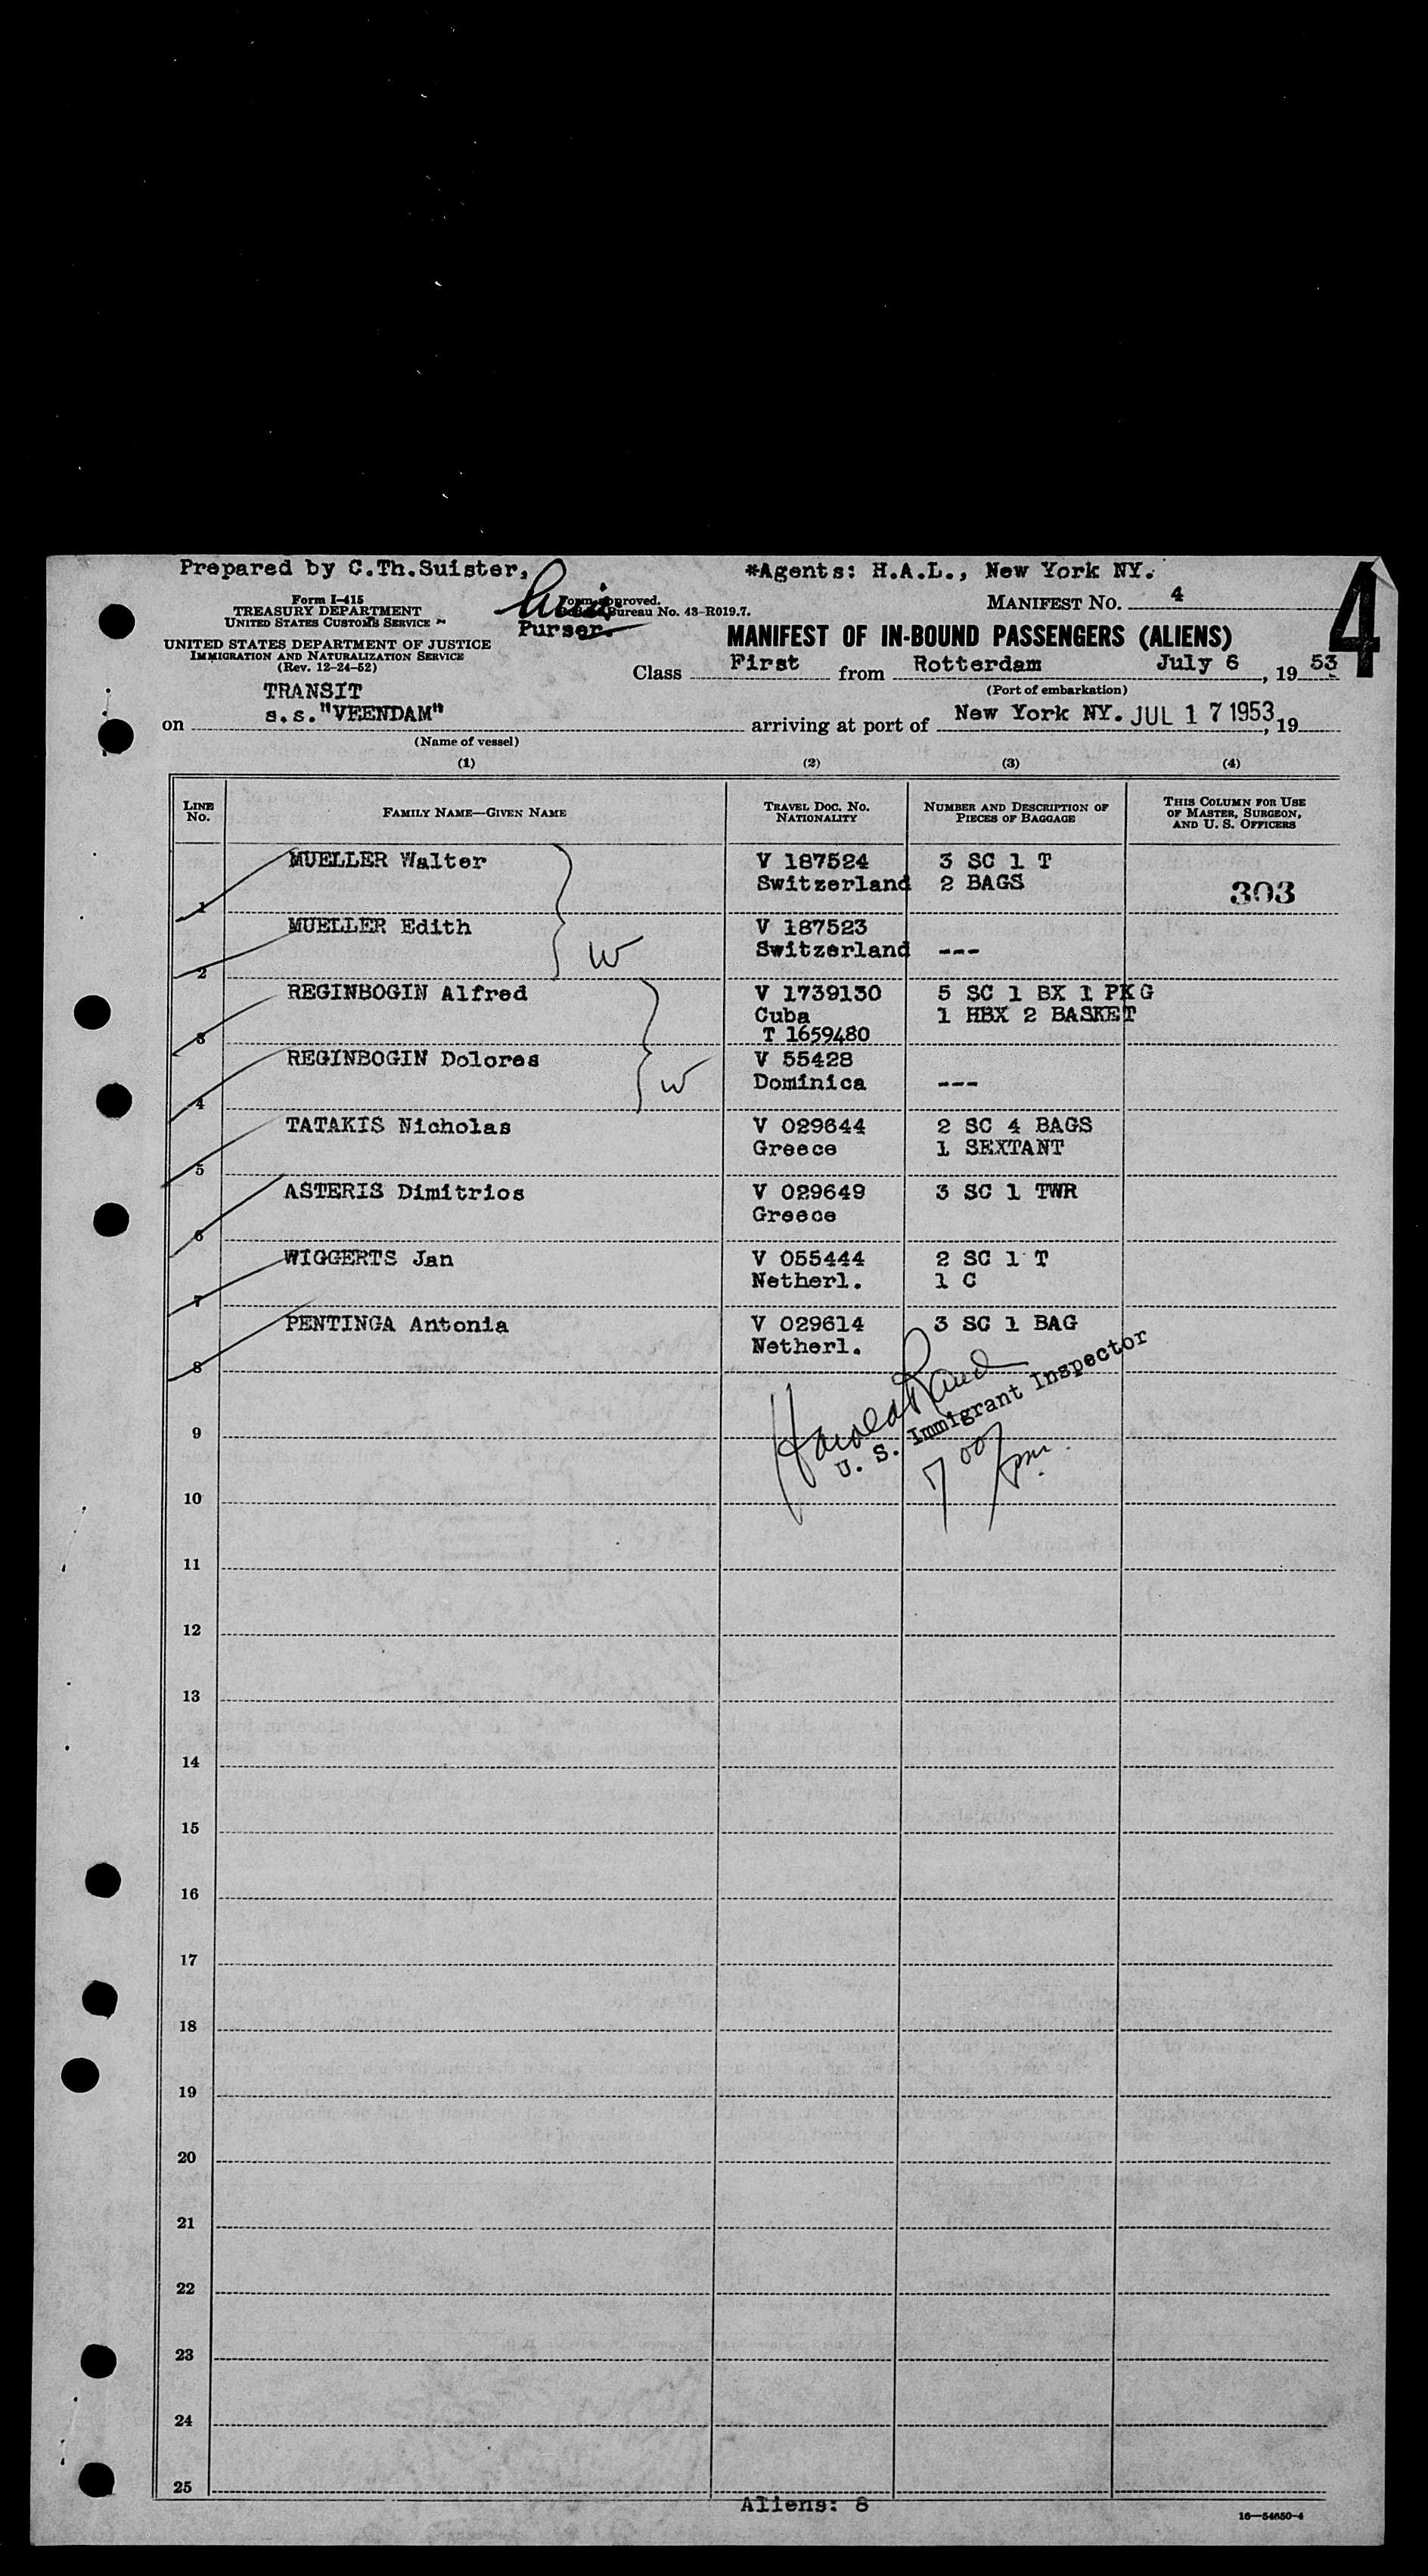 Prepared by C.Th.Suister,
*Agents: H.A.L., New York NY.
4
Form I-415
TREASURY DEPARTMENT
UNITED STATES CUSTOMS SERVICE
UNITED STATES DEPARTMENT OF JUSTICE
IMMIGRATION AND NATURALIZATION SERVICE
(Rev. 12-24-52)
Form approved.
Bureau No. 43-R019.7.
Purser.
MANIFEST NO. 4
MANIFEST OF IN-BOUND PASSENGERS (ALIENS)
Class First from Rotterdam July 6, 19 53
(Port of embarkation)
TRANSIT
on s.s."VEENDAM" arriving at port of New York NY. JUL 17 1953, 19
(Name of vessel)
(1) (2) (3) (4)
LINE No. FAMILY NAME—GIVEN NAME TRAVEL DOC. NO. NATIONALITY NUMBER AND DESCRIPTION OF PIECES OF BAGGAGE THIS COLUMN FOR USE OF MASTER, SURGEON, AND U. S. OFFICERS
MUELLER Walter V 187524 3 SC 1 T
1 Switzerland 2 BAGS 303
MUELLER Edith V 187523
2 W Switzerland ---
REGINBOGIN Alfred V 1739130 5 SC 1 BX 1 PKG
Cuba 1 HBX 2 BASKET
3 T 1659480
REGINBOGIN Dolores V 55428
4 W Dominica ---
TATAKIS Nicholas V 029644 2 SC 4 BAGS
5 Greece 1 SEXTANT
ASTERIS Dimitrios V 029649 3 SC 1 TWR
6 Greece
WIGGERTS Jan V 055444 2 SC 1 T
7 Netherl. 1 C
PENTINGA Antonia V 029614 3 SC 1 BAG
8 Netherl.
Harold Rand
U. S. Immigrant Inspector
7 00/pm.
9
10
11
12
13
14
15
16
17
18
19
20
21
22
23
24
25
Aliens: 8
16—54650-4